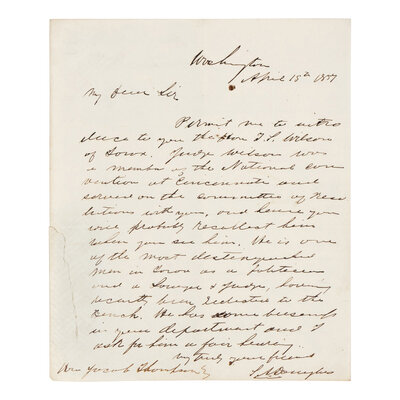 Washington
April 15th 1857
My Dear Sir
Permit me to intro
duce to you the Hon T. S. Wilson
of Iowa. Judge Wilson was
a member of the National con
vention at Cincinnati and
served on the committee of Reso
lutions with you, and hence you
will probably recollect him
when you see him. He is one
of the most distinguished
men in Iowa as a politician
and a Lawyer & Judge, having
recently been reelected to the
Bench. He has some business
in your department and I
ask for him a fair hearing.
Very truly your friend
Hon Jacob Thompson S. A. Douglas